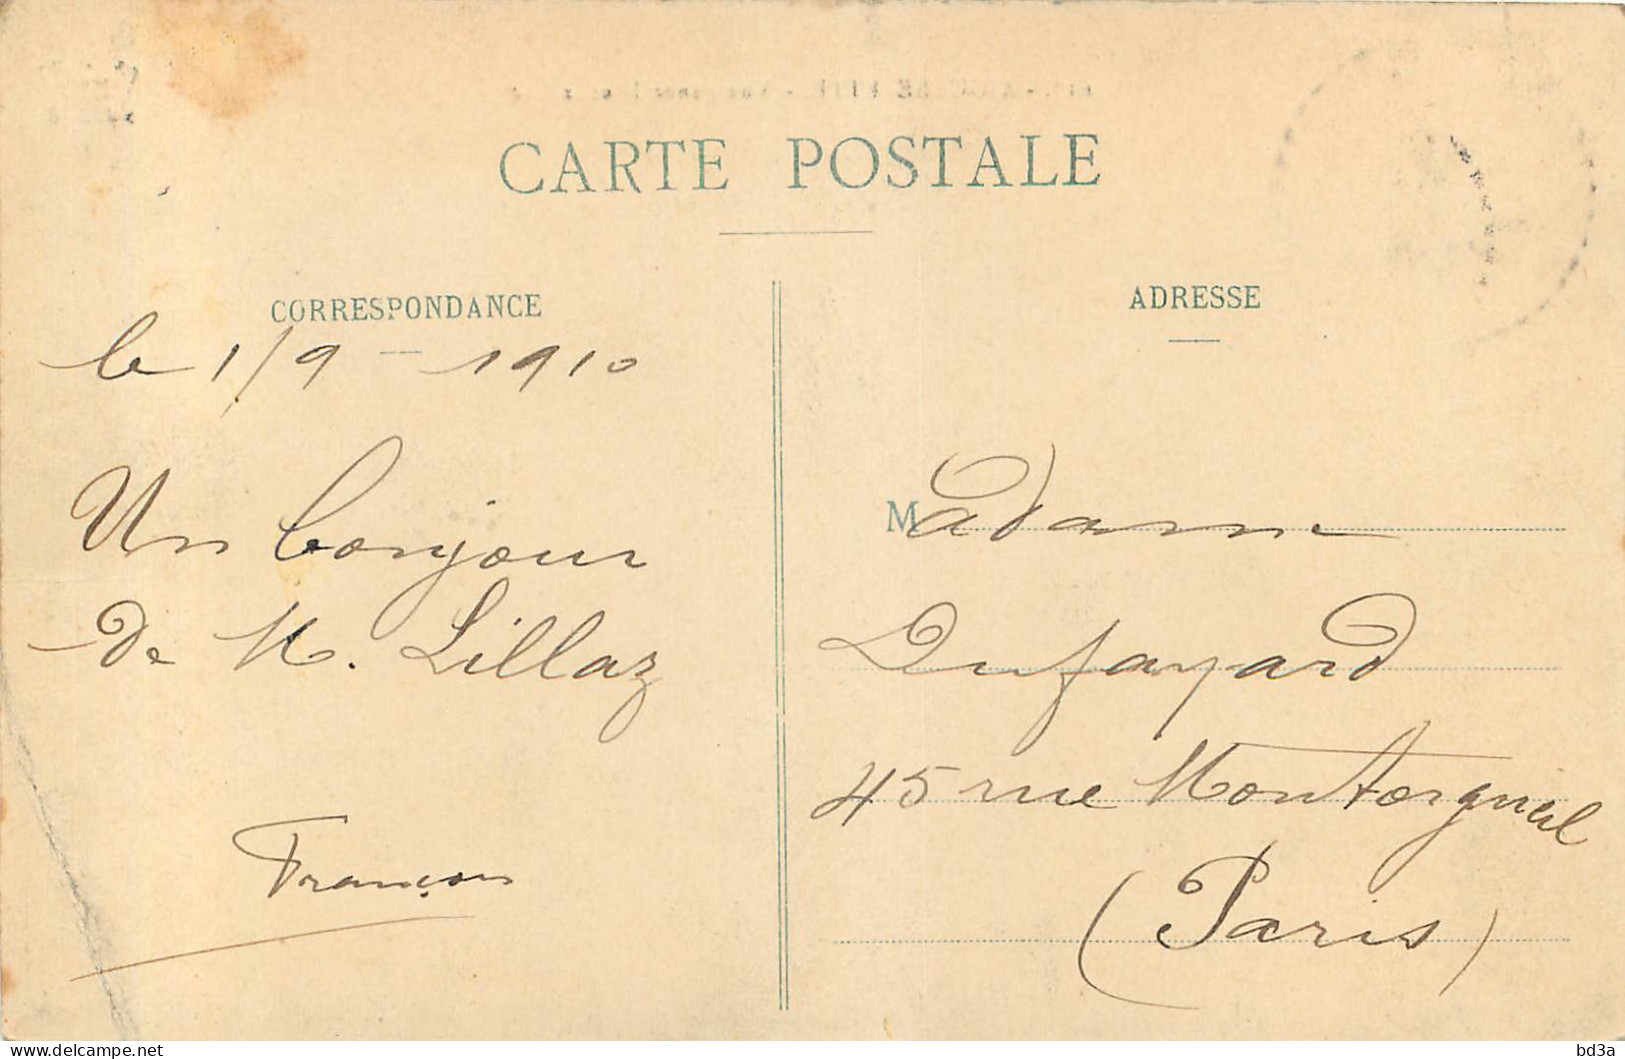 CARTE POSTALE
CORRESPONDANCE
le 1/9 - 1910
Un bonjour
de M. Lillaz
François
ADRESSE
Madame
Dufayard
45 rue Montorgueil
(Paris)
delcampe.net
bd3a